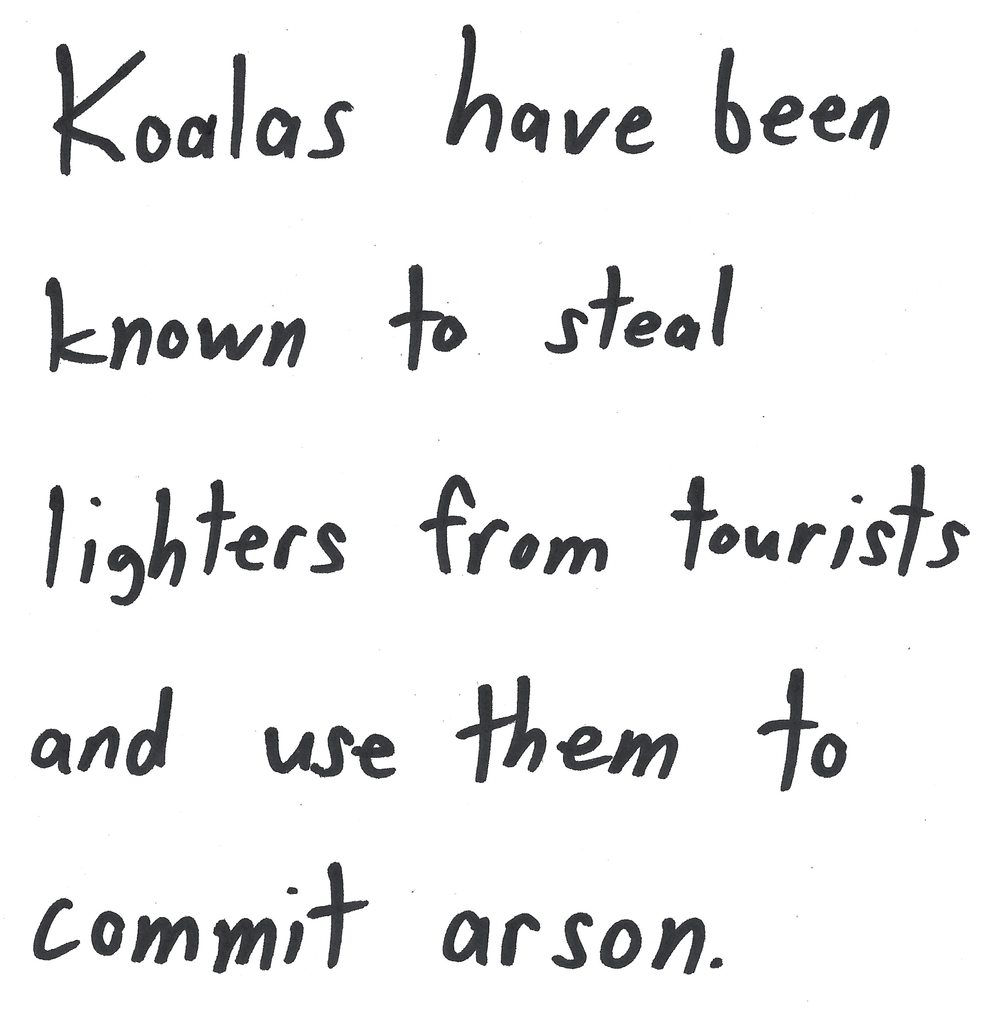 Koalas have been
known to steal
lighters from tourists
and use them to
commit arson.